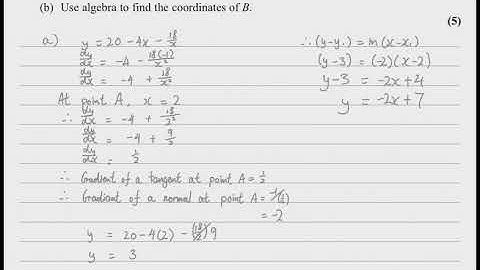 (b) Use algebra to find the coordinates of B.
(5)
a) y = 20 - 4x - 18/x
dy/dx = -4 - 18(-1)/x²
dy/dx = -4 + 18/x²
At point A, x = 2
∴ dy/dx = -4 + 18/2²
dy/dx = -4 + 9/2
dy/dx = 1/2
∴ Gradient of a tangent at point A = 1/2
∴ Gradient of a normal at point A = -1/(1/2)
= -2
y = 20 - 4(2) - (18/2) 9
y = 3
∴ (y-y₁) = m(x-x₁)
(y-3) = (-2)(x-2)
y-3 = -2x+4
y = -2x+7